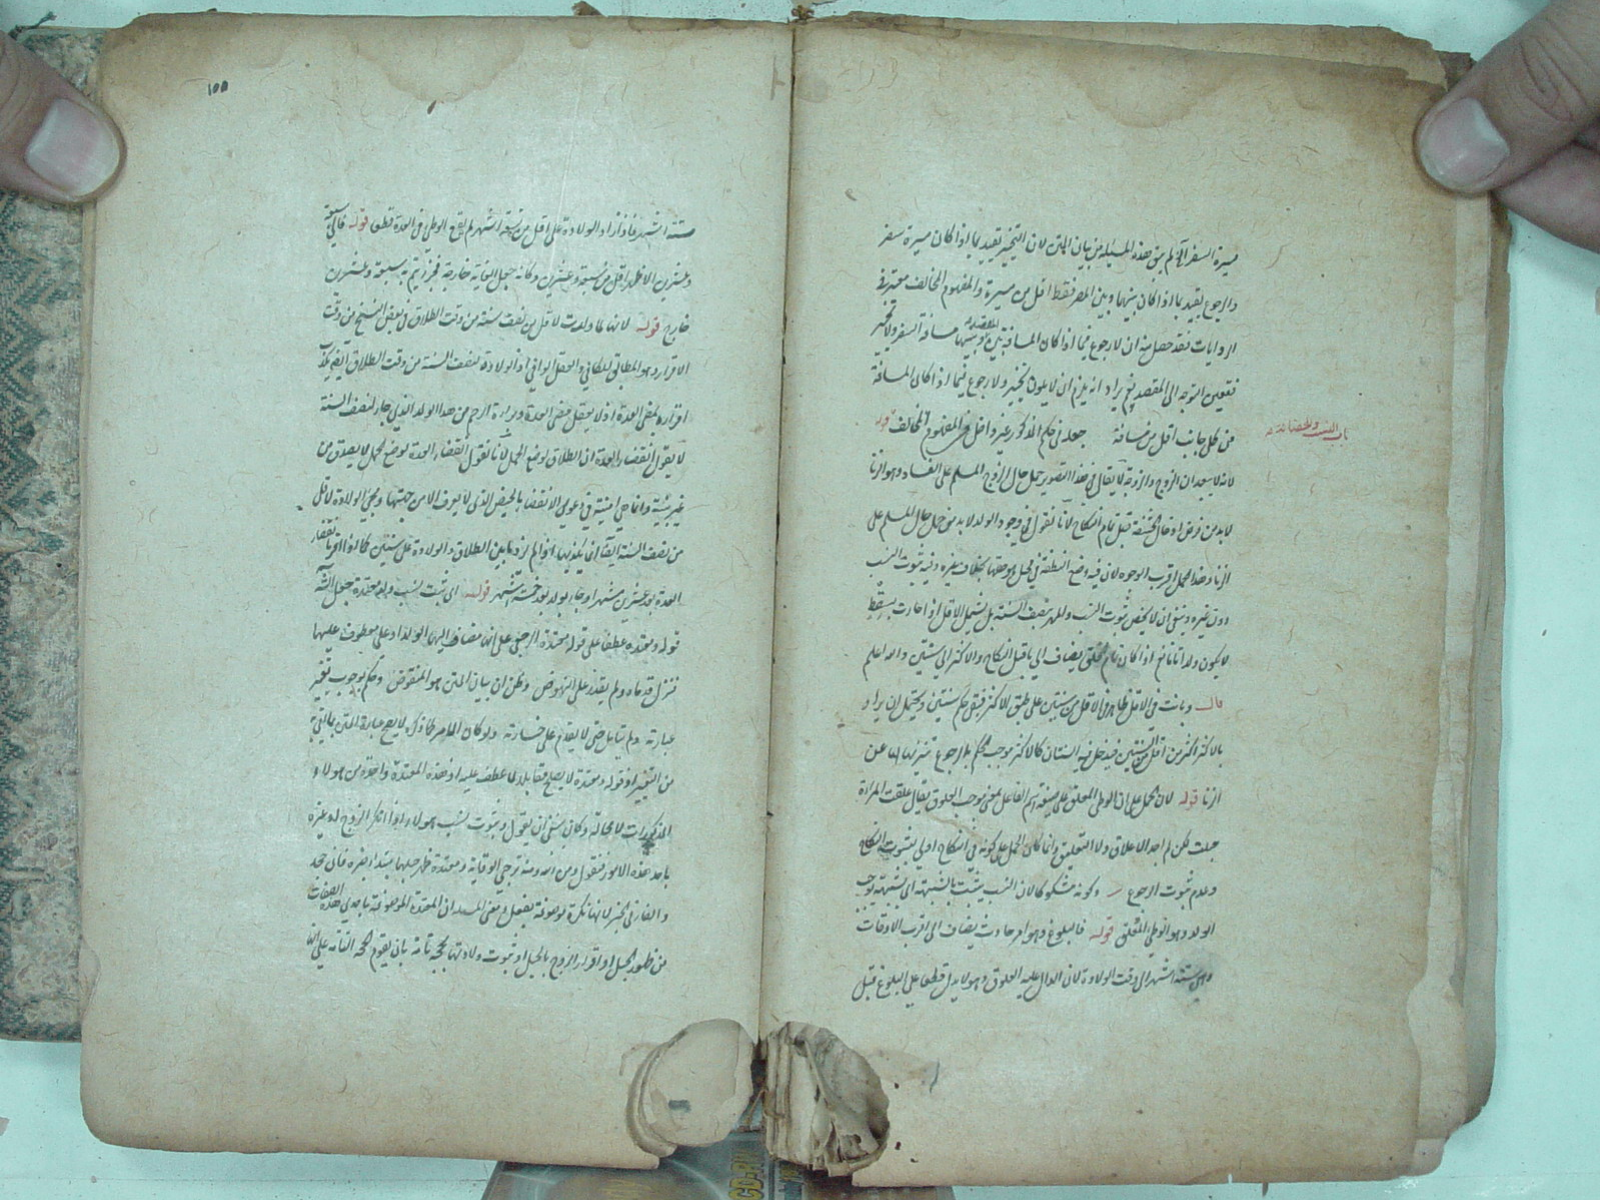 مسيرة السفر آه لم يبق هذه المسئلة من بيان المتن لان التخيير يقيد بما اذا كان مسيرة سفر
والرجوع يقيد بما اذا كان بينها وبين المصر فقط اقل من مسيرة والمفهوم المخالف معتبر في
الروايات فقد حصل منه ان لا رجوع فيما اذا كان المسافة بينه وبينها مسافة السفر ولا تخيير
المقصد
فتعين التوجه الى المقصد نعم يراد انه يلزم ان لا يكون تخيير ولا رجوع فيما اذا كان المسافة
من كل جانب اقل من مسافة جعله في حكم المذكور غير داخل في المفهوم المخالف قوله
باب النسب والحضانة
لانه لا يبعد ان الزوج والزوجة لا يقال في هذا التصوير حمل حال الزوج المسلم على الفساد وهو الزنا
لا بد من فرض ادخال الحشفة قبل تمام النكاح لانا نقول في وجود الولد لا بد من حمل حال المسلم على
الزنا وهذا الحمل اقرب الوجوه لان فيه وضع النطفة في محل هو حقها بخلاف غيره وفيه ثبوت النسب
دون غيره وينبغي ان لا يخص ثبوت النسب والمهر بنصف السنة بل يشمل الاقل اذا جاءت بسقط
لا يكون ولدا تاما نعم اذا كان تام الخلق يضاف الى ما قبل النكاح والاكثر الى سنتين والله اعلم
قال وبانت في الاقل ظاهره في الاقل من سنتين على طبق الاكثر فبقي حكم سنتين ويحتمل ان يراد
بالاكثر اكثر من اقل السنتين فيدخل فيه السنتان كالاكثر موجب لحكم الرجوع تنزيها لها عن
الزنا قوله لان الحمل على ان الوطى المعلق على صيغة اسم الفاعل بمعنى موجب العلوق يقال علقت المرأة
حبلت لكن لم اجد الاعلاق ولا التعليق وانما كان الحمل على كونه في النكاح اولى لثبوت النكاح
وعدم ثبوت الرجوع وكونه مشكوكا لان النسب يثبت بالشبهة اى بشبهة توجب
الولد وهو الوطى المعلق قوله فالبلوغ وهو امر حادث يضاف الى اقرب الاوقات
وهي ستة اشهر الى وقت الولادة لان الدال عليه العلوق وهو لا يدل قطعا على البلوغ قبل
١٥٥
ستة اشهر فاذا زاد الولادة على اقل من تسعة اشهر لم يقع الوطى في العدة قطعا قوله قالى سبعة
وعشرين الاظهر اقل من سبعة وعشرين وكانه جعل الغاية خارجة فجزء يتم به سبعة وعشرين
خارج قوله لانها لما ولدت لاقل من نصف سنة من وقت الطلاق في بعض النسخ من وقت
الاقرار وهو المطابق للكافي والعقل الوافي اذ الولادة لنصف السنة من وقت الطلاق ايضا يكذب
اقراره بمضى العدة اذ لا يعقل مضى العدة وبراءة الرحم من هذا الولد الذي جاء لنصف السنة
لا يقول انقضاء العدة ان الطلاق بوضع الحمل لانا نقول انقضاء العدة بوضع الحمل لا يصدق من
غير بينة وانما هي امينة في دعوى الانقضاء بالحيض الذي لا يعرف الا من جهتها ومجئ الولادة لاقل
من نصف السنة ايضا انما يكذبها اذا لم يزد ما بين الطلاق والولادة على سنتين كما لو اقرت بانقضاء
العدة بعد عشرين شهرا وجاء بولد بعد خمسة اشهر قوله اى ثبت نسب ولد معتدة جعل الشارح
قوله ومعتدة عطفا على قوله معتدة الرجعي على انها مضاف اليها الولد او على معطوف عليها
فنزل قدماه ولم يقدر على النهوض وظن ان بيان المتن هو المنقوض وحكم بوجوب تغيير
عبارته ولم يتأمل حتى لا يقدم على خسارته ولو كان الامر كما ذكره لا يصح عبارة المتن بما اتى به
من التغيير اذ قوله ومعتدة لا يصلح مقابلا لما عطف عليه اذ هذه المعتدة واحدة من هولاء
المذكورات لا محالة وكان ينبغي ان يقول ويثبت نسب هولاء اذا انكر الزوج لو غيره
باحد هذه الامور فنقول ومن الله ومنه نرجى الوقاية ومعتدة ظهر حبلها مبتدأ خبره فان جحد
والفاء في الخبر لانها نكرة موصوفة بفعل ومعنى المسند ان المعتدة الموصوفة باحدى هذه الصفات
من ظهور الحبل او اقرار الزوج بالحبل او ثبوت ولادتها بحجة تامة بان يقوم الحجة التامة على انه